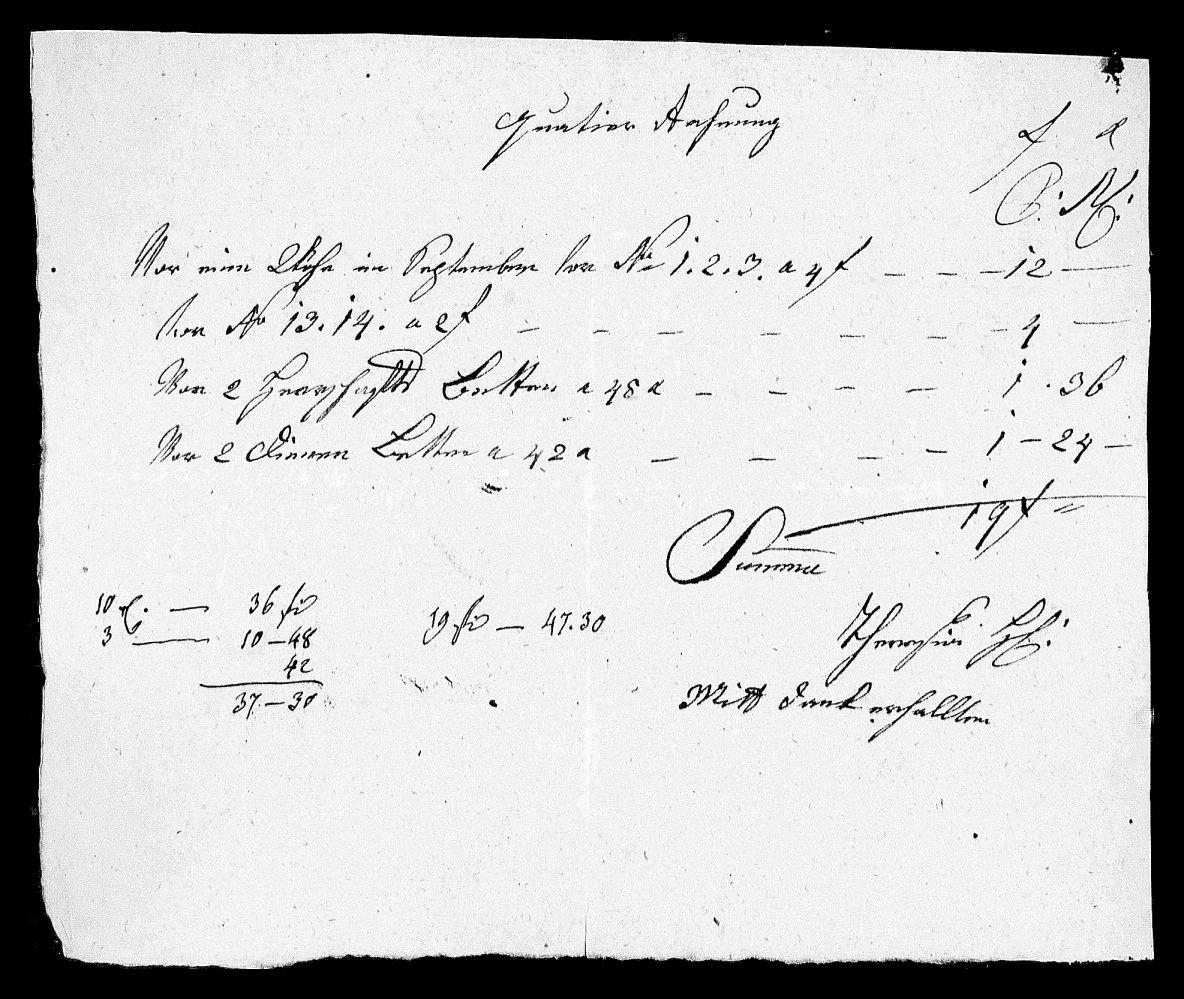 Quatier Rechnung
f x
C: M:
Vor eine Woche im September vor No 1. 2. 3. a 4 f — — — 12 —
vor No 13. 14. a 2 f — — — — — — 4 —
Vor 2 Herrschaftl Betten a 48 x — — — — 1 . 36
Vor 2 Dienen Betten a 42 x — — — — 1 — 24 —
19 f =
Summa
10 — 36
3 — 10 — 48
42
37. — 30
19 — 47. 30
Mitt Dank erhallten